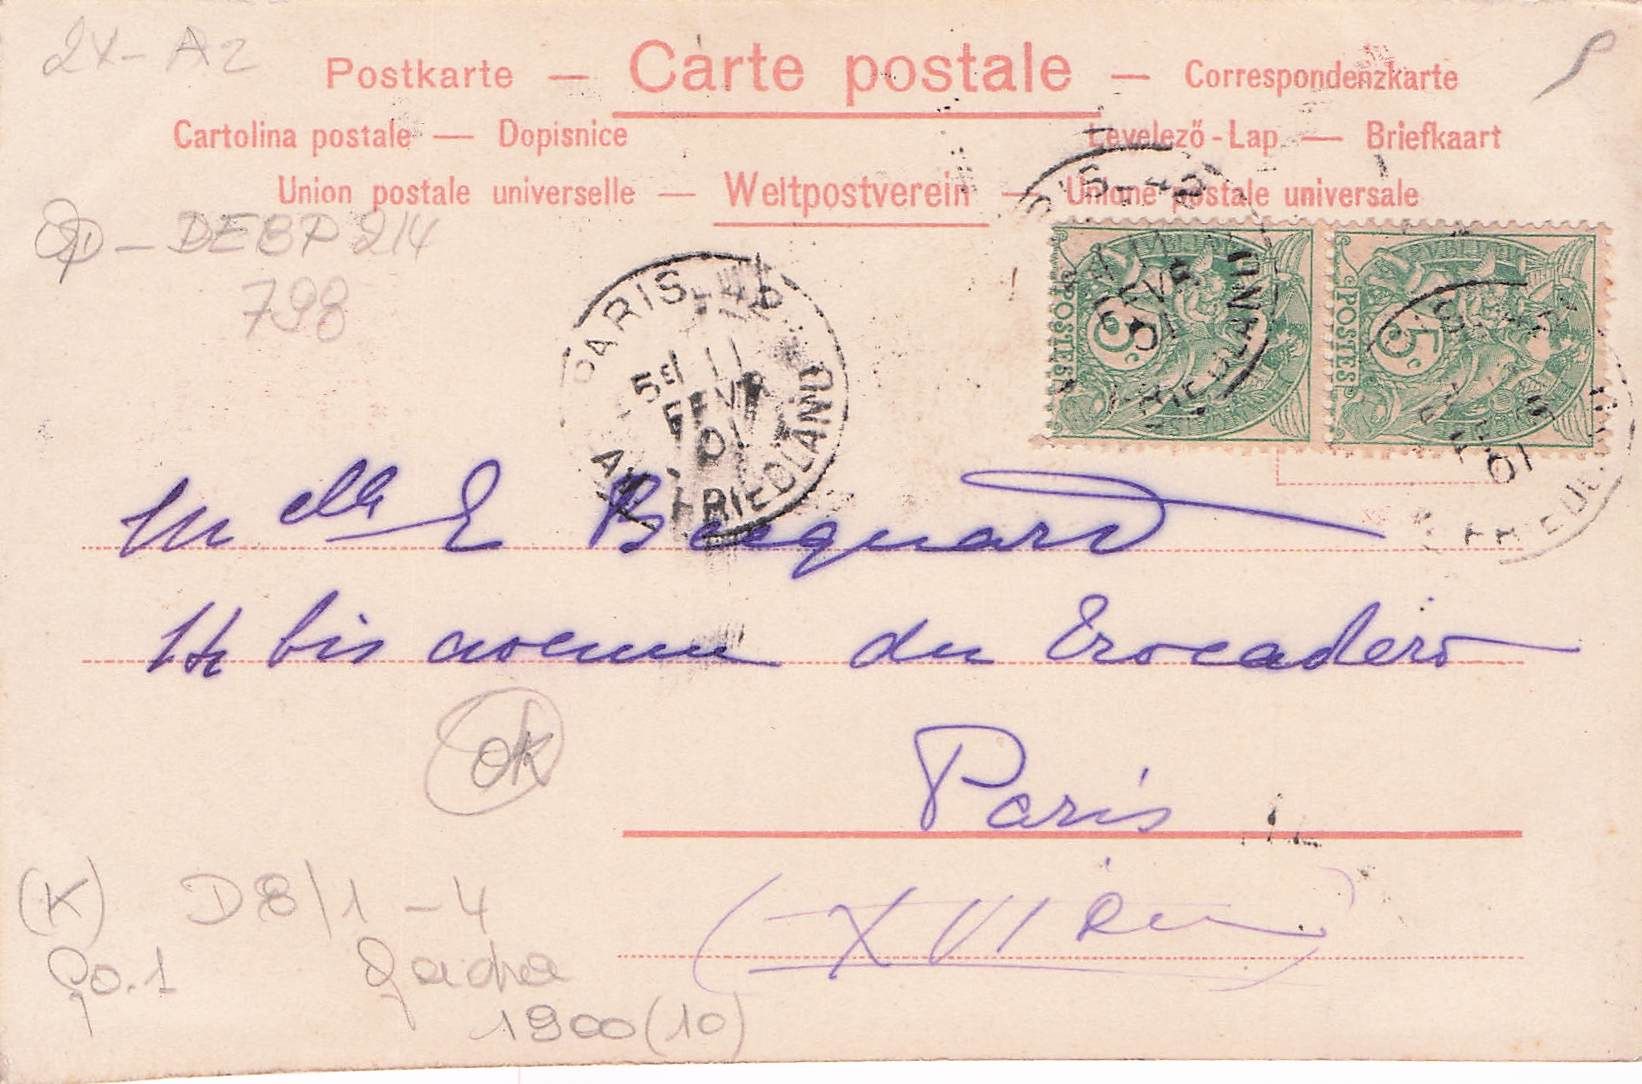 24-A2
Postkarte — Carte postale — Correspondenzkarte
Cartolina postale — Dopisnice
Levelező-Lap — Briefkaart
Union postale universelle — Weltpostverein — Unione postale universale
DEBP 214
798
PARIS
5E 11
FEVR
01
AV. FRIEDLAND
FEVR
01
FRIEDLAND
5c
POSTES
5c
POSTES
01
FRIEDL
Melle E Becquard
14 bis avenue du Trocadero
ok
Paris
(XVIe)
(K) D8/1-4
1900(10)